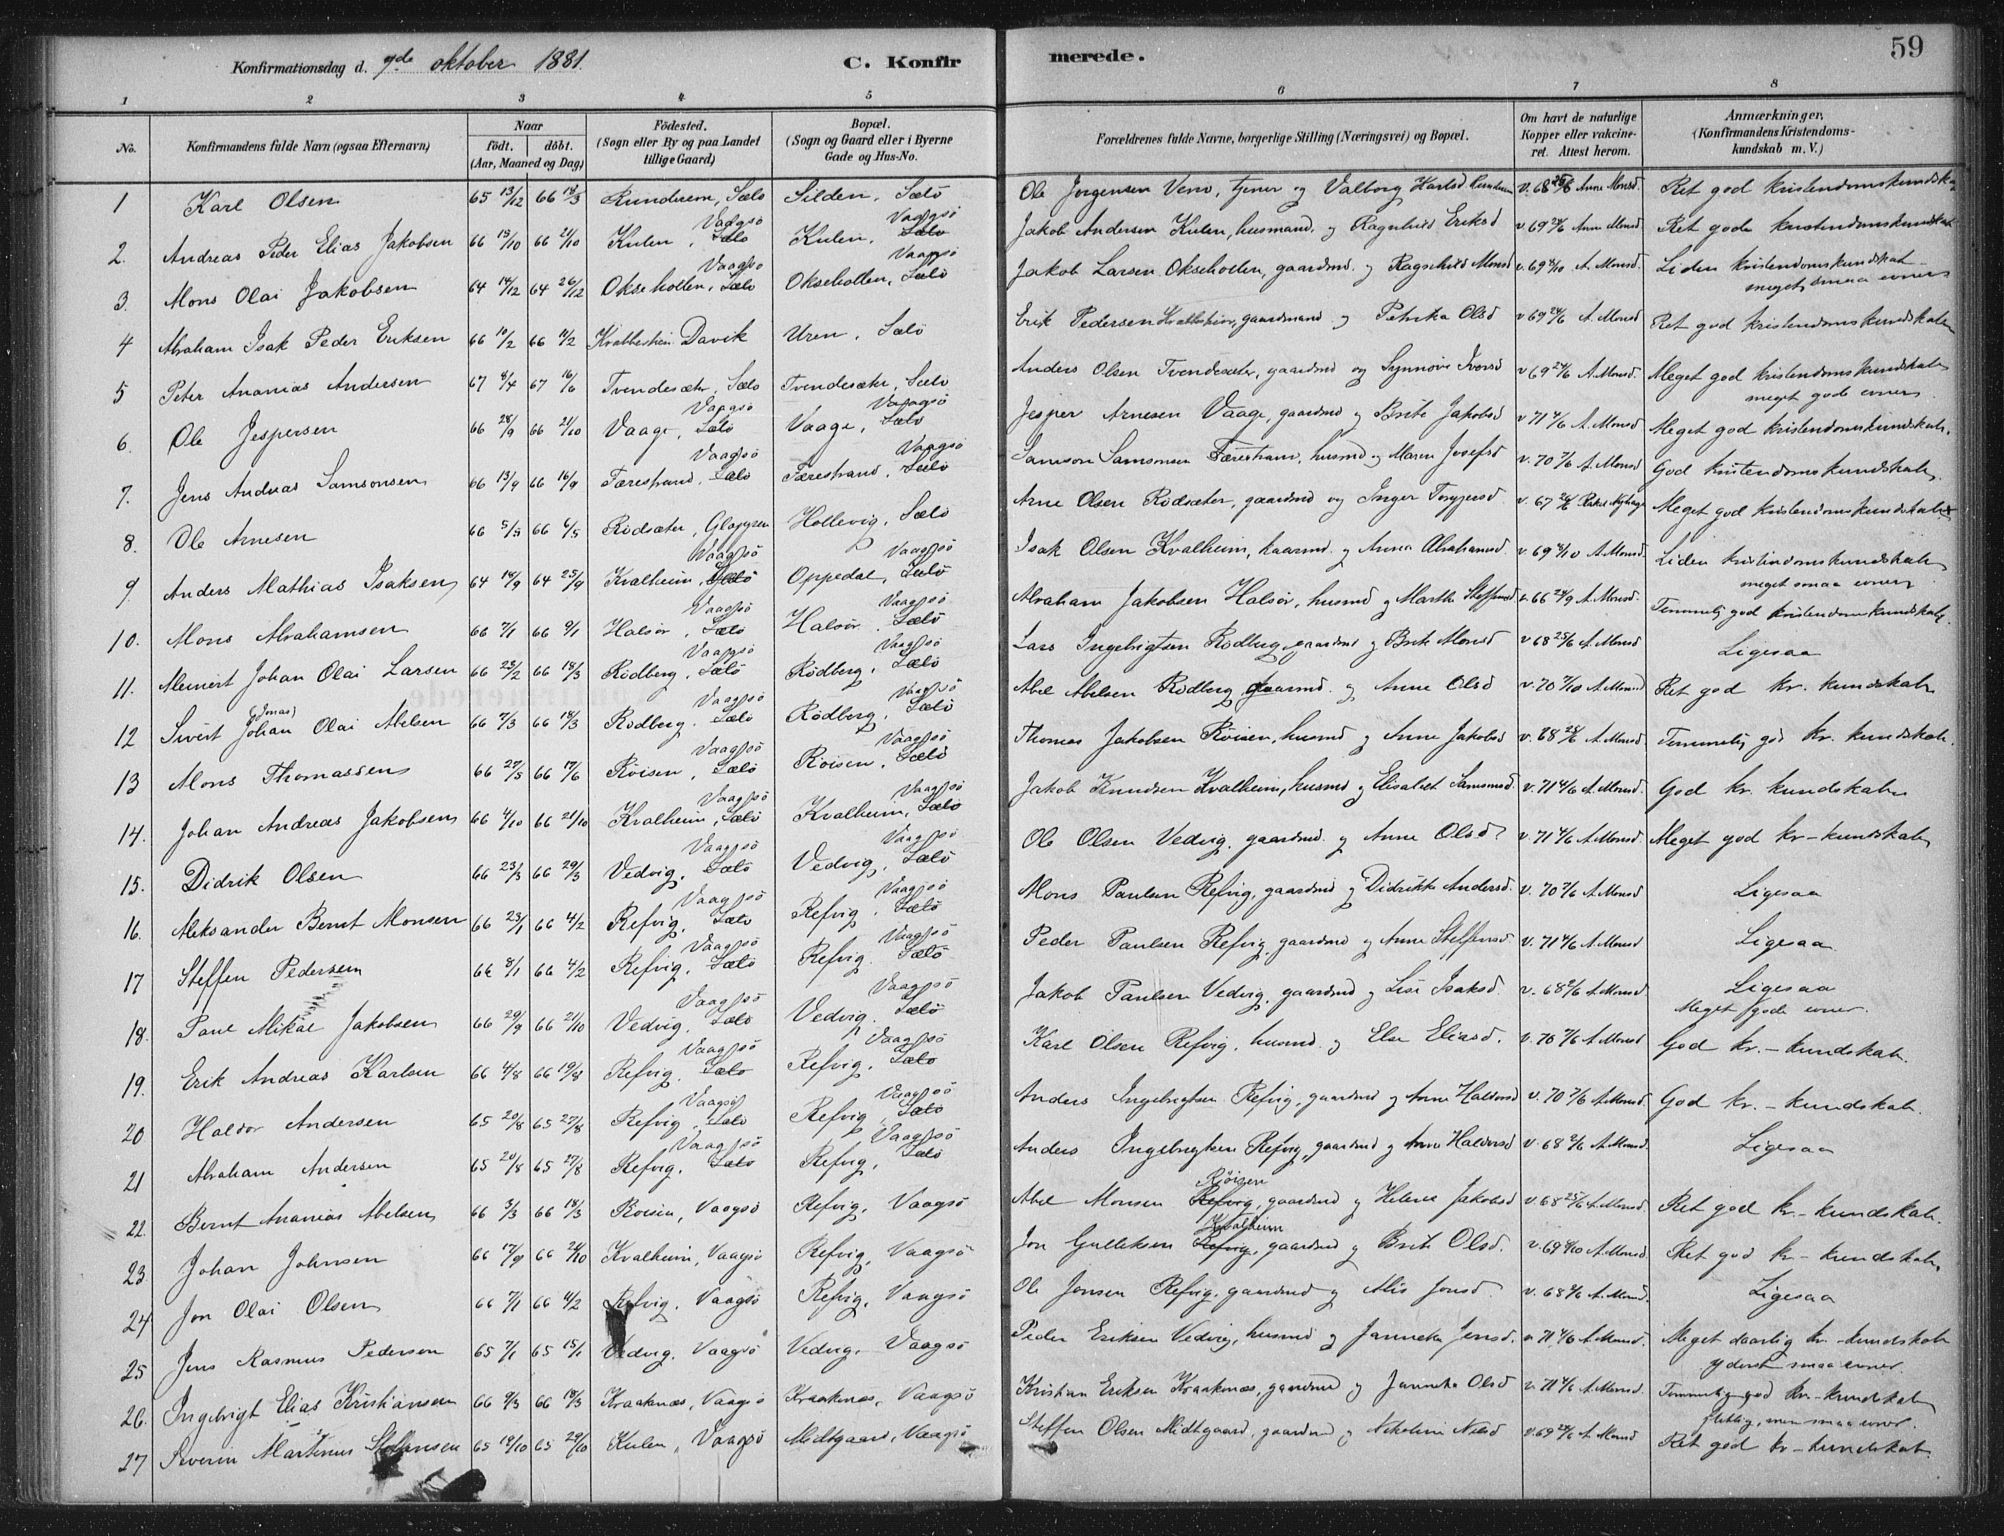 Konfirmationsdag d. 9de oktober 1881. C. Konfirmerede. 59
1 2 3 4 5 6 7 8
No. Konfirmandens fulde Navn (ogsaa Efternavn) Naar födt. döbt. (Aar, Maaned og Dag) Födested. (Sogn eller By og paa Landet tillige Gaard) Bopæl. (Sogn og Gaard eller i Byerne Gade og Hus-No. Forældrenes fulde Navne, borgerlige Stilling (Næringsvei) og Bopæl. Om havt de naturlige Kopper eller vakcineret. Attest herom. Anmærkninger. (Konfirmandens Kristendomskundskab m. V.)
1 Karl Olsen 65 13/12 66 18/3 Sælö Silden, Sælö Ole Jörgensen tjener og Valborg v. 68 Anne Monsd. Ret god kristendomskundskab
2. Andreas Peder Elias Jakobsen 66 13/10 66 21/10 Kulen, Sælö Vaagsö Kulen, Sælö Vaagsö Jakob Andersen Kulen, husmand. og Ragnhild Eriksd v 69 24/6 Anne Monsd. Ret gode kristendomskundskab
3. Mons Olai Jakobsen 64 14/12 64 26/12 Oksehollen, Sælö Vaagsö Oksehollen, Sælö Vaagsö Jakob Larsen Oksehollen, gaardmd. og Ragnhild Monsd v. 69 A. Monsd. Liden kristendomskundskab meget smaa evner
4 Abraham Isak Peder Eriksen 66 10/2 66 11/2 Davik Uren, Sælö Erik Pedersen gaardmand og Petrika Olsd v 69 24/6 A. Monsd. Ret god kristendomskundskab
5 Peter Ananias Andersen 67 8/4 67 16/6 Tvendesæter, Sælö Tvendesæter, Sælö Anders Olsen Tvendesæter, gaardmd og Synnöve Iversd v 69 24/6 A. Monsd. Meget god kristendomskundskab meget gode evner
6. Ole Jespersen 66 28/9 66 21/10 Vaage, Sælö Vaagsö Vaage, Sælö Vaagsö Jesper Arnesen Vaage, gaardmd og Brite Jakobsd v 71 4/6 A. Monsd Meget god kristendomskundskab.
7. Jens Andreas Samsonsen 66 13/9 66 16/9 Færestrand, Sælö Vaagsö Færestrand, Sælö Vaagsö Samson Samsonsen husmd og Maren Josefsd v. 70 7/6 A. Monsd God kristendomskundskab.
8. Ole Arnesen 66 5/5 66 6/5 Rödsæter, Hollevig, Sælö Arne Olsen Rödsæter, gaardmd og Inger v. 67 Meget god kristendomskundskab
9. Anders Mathias Isaksen 64 18/9 64 25/9 Kvalheim, Sælö Vaagsö Oppedal, Sælö Vaagsö Isak Olsen Kvalheim, og Anna Abrahamsd. v. 69 A. Monsd. Liden kristendomskundskab meget smaa evner
10. Mons Abrahamsen 66 7/1 66 9/1 Halsör, Sælö Vaagsö Halsör, Sælö Vaagsö Abraham Jakobsen Halsör, husmd og Marthe Steffensd v. 66 24/9 A. Monsd. Temmelig god kristendomskundskab.
11. Meinert Johan Olai Larsen 66 25/2 66 18/3 Rödberg, Sælö Vaagsö Rödberg, Sælö Vaagsö Lars Ingebrigtsen Rödberg, gaardmd og Brite Monsd v 68 25/6 A. Monsd Ligesaa
12 Sivert Johan (Jonas) Olai Abelsen 66 7/3 66 18/3 Rödberg, Sælö Vaagsö Rödberg, Sælö Vaagsö Abel Abelsen Rödberg gaarmd. og Anne Olsd v. 70 A. Monsd Ret god kr. kundskab
13 Mons Thomassen 66 27/5 66 17/6 Röisen, Sælö Vaagsö Röisen, Sælö Vaagsö Thomas Jakobsen Röisen, husmd og Anne Jakobsd v. 68 25/6 A. Monsd Temmelig god kr. kundskab.
14. Johan Andreas Jakobsen 66 4/10 66 21/10 Kvalheim, Sælö Vaagsö Kvalheim, Sælö Vaagsö Jakob Knudsen Kvalheim, husmd og Elisabet Samsonsd. v. 71 4/6 A. Monsd. God kr. kundskab
15. Didrik Olsen 66 23/3 66 29/3 Vedvig, Sælö Vaagsö Vedvig, Sælö Vaagsö Ole Olsen Vedvig, gaardmd. og Anne Olsd v. 71 4/6 A. Monsd. Meget god kr-kundskab
16. Aleksander Bernt Monsen 66 23/1 66 4/2 Refvig, Sælö Vaagsö Refvig, Sælö Vaagsö Mons Paulsen Refvig, gaardmd og Didrikke Andersd. v. 70 7/6 A. Monsd Ligesaa
17 Steffen Pedersen 66 8/1 66 4/2 Refvig, Sælö Vaagsö Refvig, Sælö Vaagsö Peder Paulsen Refvig, gaardmd og Anne Steffensd. v. 71 4/6 A. Monsd Ligesaa
18. Paul Mikal Jakobsen 66 29/9 66 21/10 Vedvig, Sælö Vaagsö Vedvig, Sælö Vaagsö Jakob Paulsen Vedvig, gaardmd og Lise Isaksd. v. 68 A. Monsd Ligesaa Meget gode evner.
19. Erik Andreas Karlsen 66 4/8 66 19/8 Refvig, Sælö Vaagsö Refvig, Sælö Vaagsö Karl Olsen Refvig, husmd. og Else Eliasd. v. 70 7/6 A. Monsd. God kr. - kundskab.
20 Haldor Andersen 65 20/8 65 27/8 Refvig, Sælö Vaagsö Refvig, Sælö Vaagsö Anders Ingebrigtsen Refvig, gaardmd og Anne Haldorsd v. 70 7/6 A. Monsd God kr. - kundskab.
21 Abraham Andersen 65 20/8 65 27/8 Refvig, Sælö Vaagsö Refvig, Sælö Vaagsö Anders Ingebrigtsen Refvig, gaardmd og Anne Haldorsd v. 68 A. Monsd. Ligesaa
22. Bernt Ananias Abelsen 66 3/3 66 18/3 Röisen, Vaagsö Refvig, Vaagsö Abel Monsen Refvig Röisen, gaardmd og Helene Jakobsd v. 68 25/6 A. Monsd. Ret god kr. - kundskab.
23. Johan Johnsen 66 17/9 66 21/10 Kvalheim, Vaagsö Refvig, Vaagsö Jon Gulleksen Refvig Kvalheim, gaardmd og Brite Olsd. v. 69 A. Monsd. Ret god kr - kundskab,
24 Jon Olai Olsen 66 7/1 66 4/2 Refvig, Vaagsö Refvig, Vaagsö Ole Jonsen Refvig, gaardmd og Alis Jonsd. v. 68 A. Monsd. Ligesaa
25 Jens Rasmus Pedersen 65 7/1 65 15/1 Vedvig, Vaagsö Vedvig, Vaagsö Peder Eriksen Vedvig, husmd og Janneka Jensd. v. 71 4/6 A. Monsd. Meget daarlig kr - kundskab yderst smaa evner
26. Ingebrigt Elias Kristiansen 66 9/3 66 18/3 Kraaknæs, Vaagsö Kraaknæs, Vaagsö Kristian Eriksen Kraaknæs, gaardmd og Janneka Olsd v. 71 4/6 A. Monsd. Temmelig god kr - kundskab flittig, men smaa evner.
27 Severin Martinus Steffensen 65 19/10 65 29/10 Kulen, Vaagsö Midtgaard, Vaagsö Steffen Olsen Midtgaard, gaardmd og Nikoline Nilsd v. 69 24/6 A. Monsd Ret god kr - kundskab